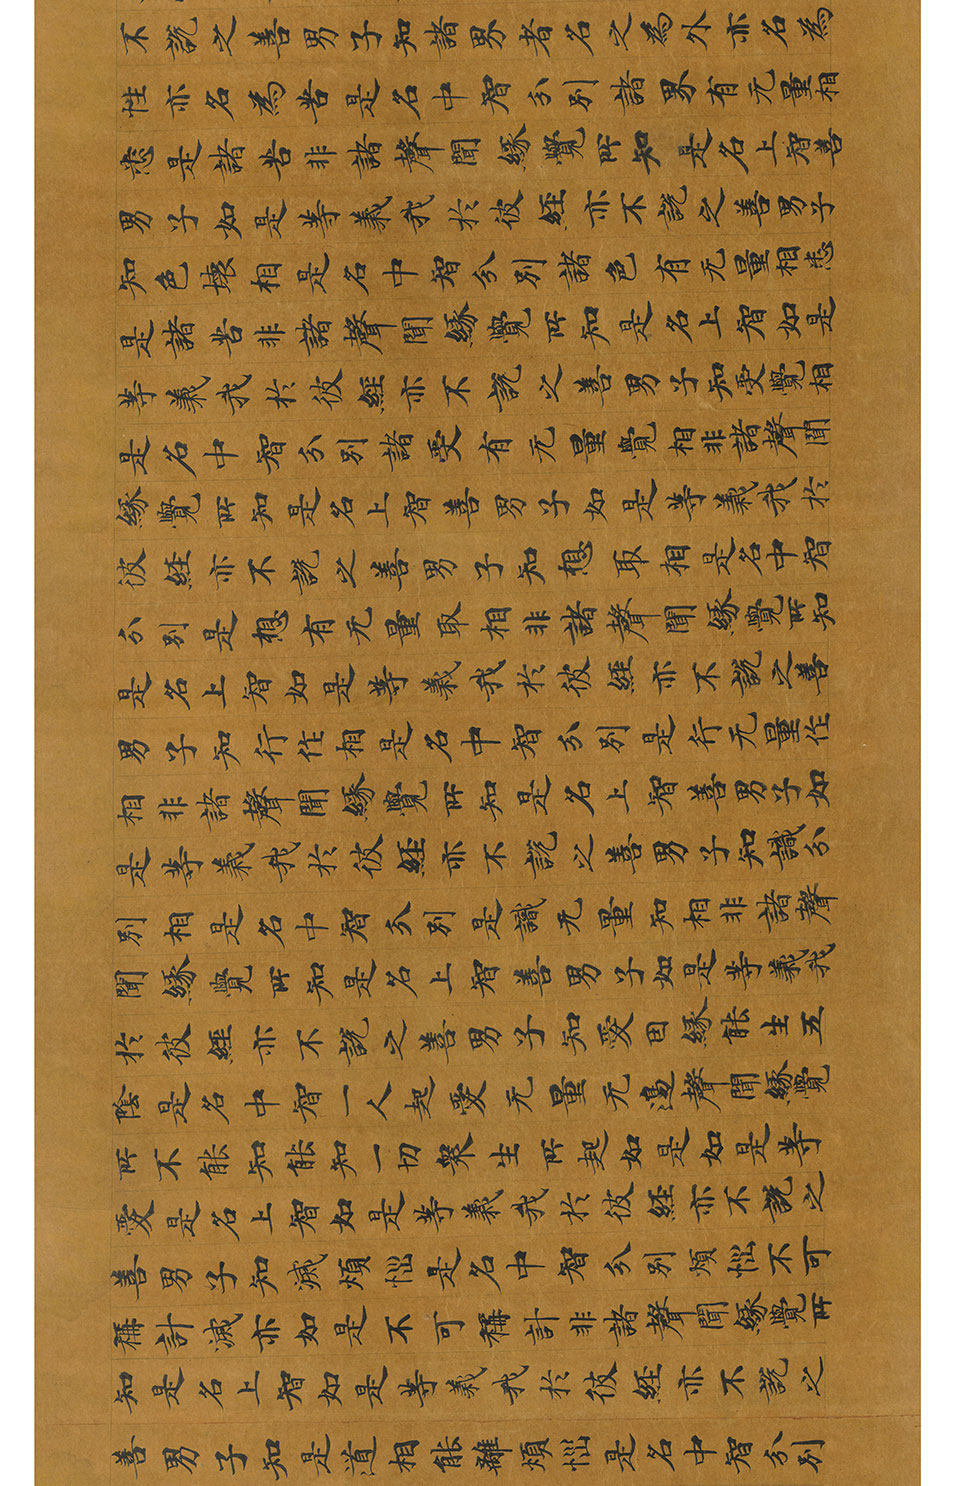 不說之善男子知諸界者名之為外亦名為
性亦名為苦是名中智分別諸界有无量相
悉是諸苦非諸聲聞緣覺所知是名上智善
男子如是等義我於彼經亦不說之善男子
知色壞相是名中智分別諸色有无量相悉
是諸苦非諸聲聞緣覺所知是名上智如是
等義我於彼經亦不說之善男子知受覺相
是名中智分別諸受有无量覺相非諸聲聞
緣覺所知是名上智善男子如是等義我於
彼經亦不說之善男子知想取相是名中智
分別是想有无量取相非諸聲聞緣覺所知
是名上智如是等義我於彼經亦不說之善
男子知行作相是名中智分別是行无量作
相非諸聲聞緣覺所知是名上智善男子如
是等義我於彼經亦不說之善男子知識分
別相是名中智分別是識无量知相非諸聲
聞緣覺所知是名上智善男子如是等義我
於彼經亦不說之善男子知愛因緣能生五
陰是名中智一人起愛无量无邊聲聞緣覺
所不能知能知一切眾生所起如是如是等
愛是名上智如是等義我於彼經亦不說之
善男子知滅煩惱是名中智分別煩惱不可
稱計滅亦如是不可稱計非諸聲聞緣覺所
知是名上智如是等義我於彼經亦不說之
善男子知是道相能離煩惱是名中智分別